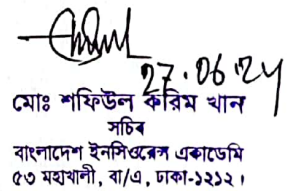 27.06.24
মোঃ শফিউল করিম খান
সচিব
বাংলাদেশ ইনসিওরেন্স একাডেমি
৫৩ মহাখালী, বা/এ, ঢাকা-১২১২।